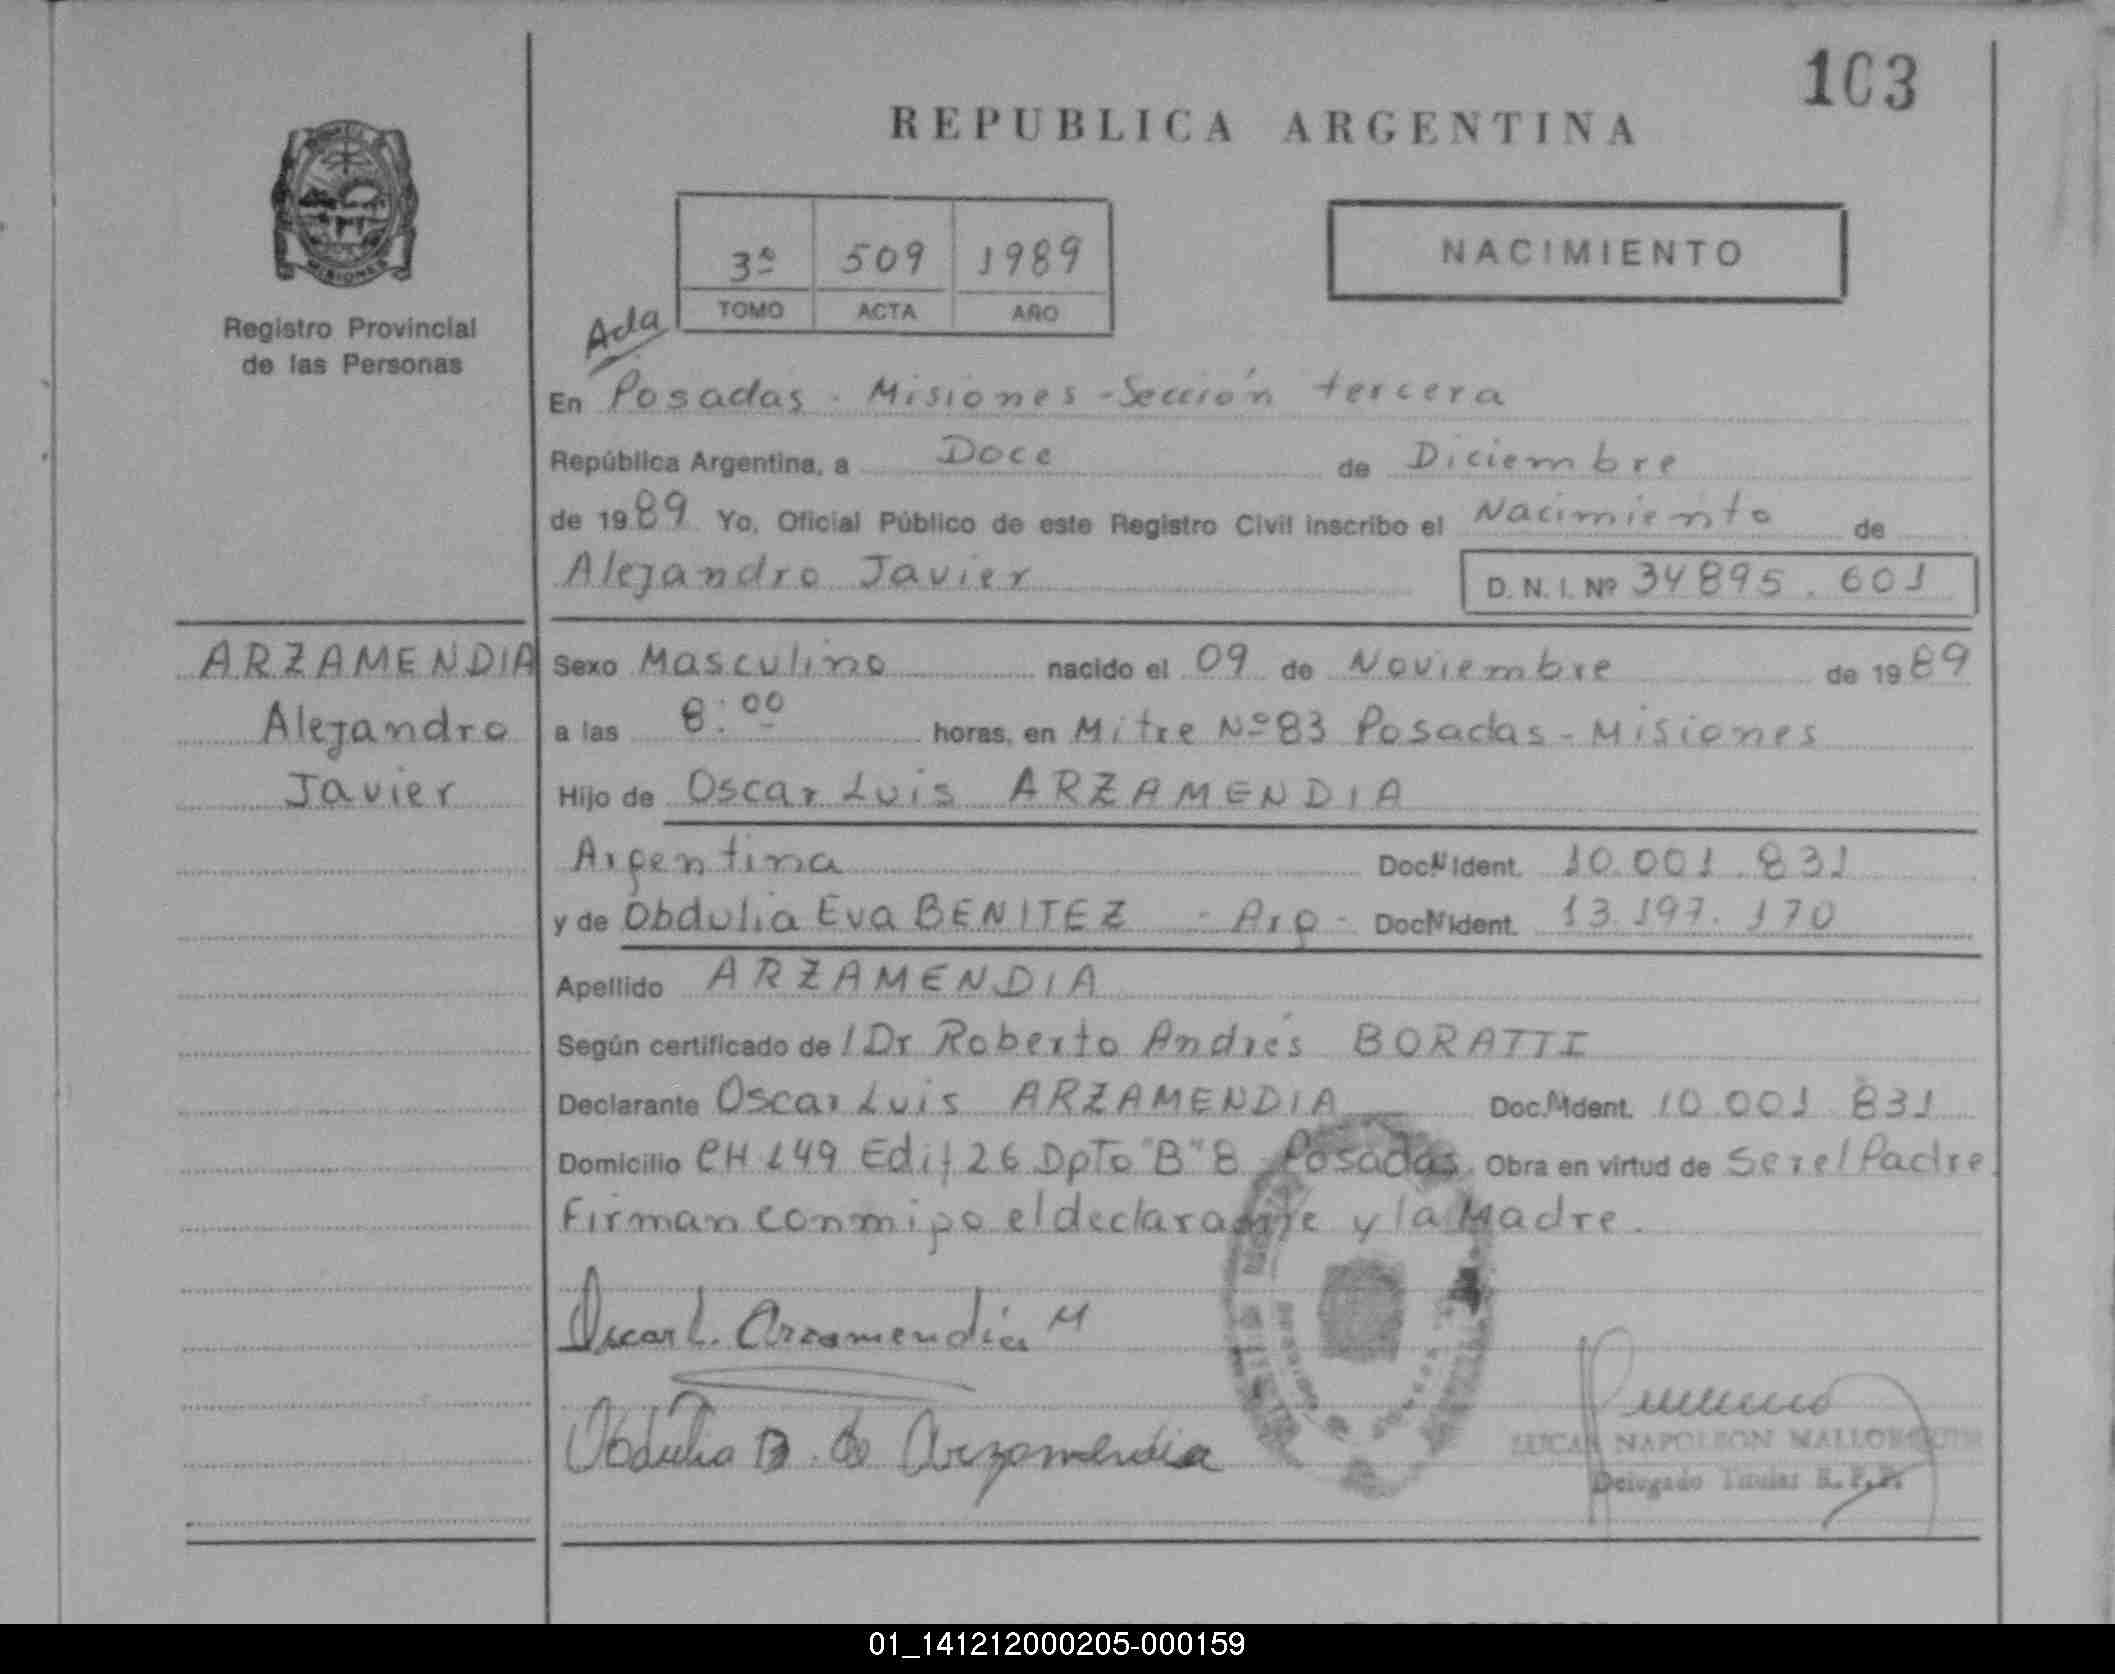 103
REPUBLICA ARGENTINA
MISIONES
Registro Provincial
de las Personas
3ª 509 1989
TOMO ACTA AÑO
NACIMIENTO
Acta
En Posadas - Misiones - Sección tercera
República Argentina, a Doce de Diciembre
de 1989 Yo, Oficial Público de este Registro Civil inscribo el Nacimiento de
Alejandro Javier D. N. I. Nº 34895.601
ARZAMENDIA
Alejandro
Javier
Sexo Masculino nacido el 09 de Noviembre de 1989
a las 8:00 horas, en Mitre Nº 83 Posadas - Misiones
Hijo de Oscar Luis ARZAMENDIA
Argentina Doc.N Ident. 10.001.831
y de Obdulia Eva BENITEZ - Arg - Doc.N Ident. 13.197.170
Apellido ARZAMENDIA
Según certificado de / Dr Roberto Andrés BORATTI
Declarante Oscar Luis ARZAMENDIA Doc.N Ident. 10.001 831
Domicilio CH 149 Edif 26 Dpto "B" 8 Posadas Obra en virtud de Ser el Padre
Firman conmigo el declarante y la Madre.
Oscar L. Arzamendia
Obdulia B. de Arzamendia
LUCAS NAPOLEON
Delegado Titular R.P.P.
01_141212000205-000159